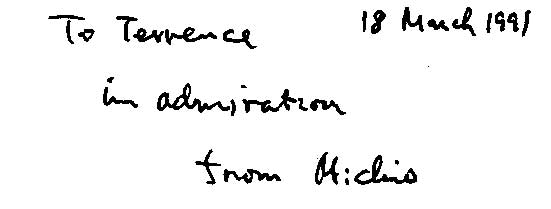 To Terrence 18 March 1991
in admiration
from Michio